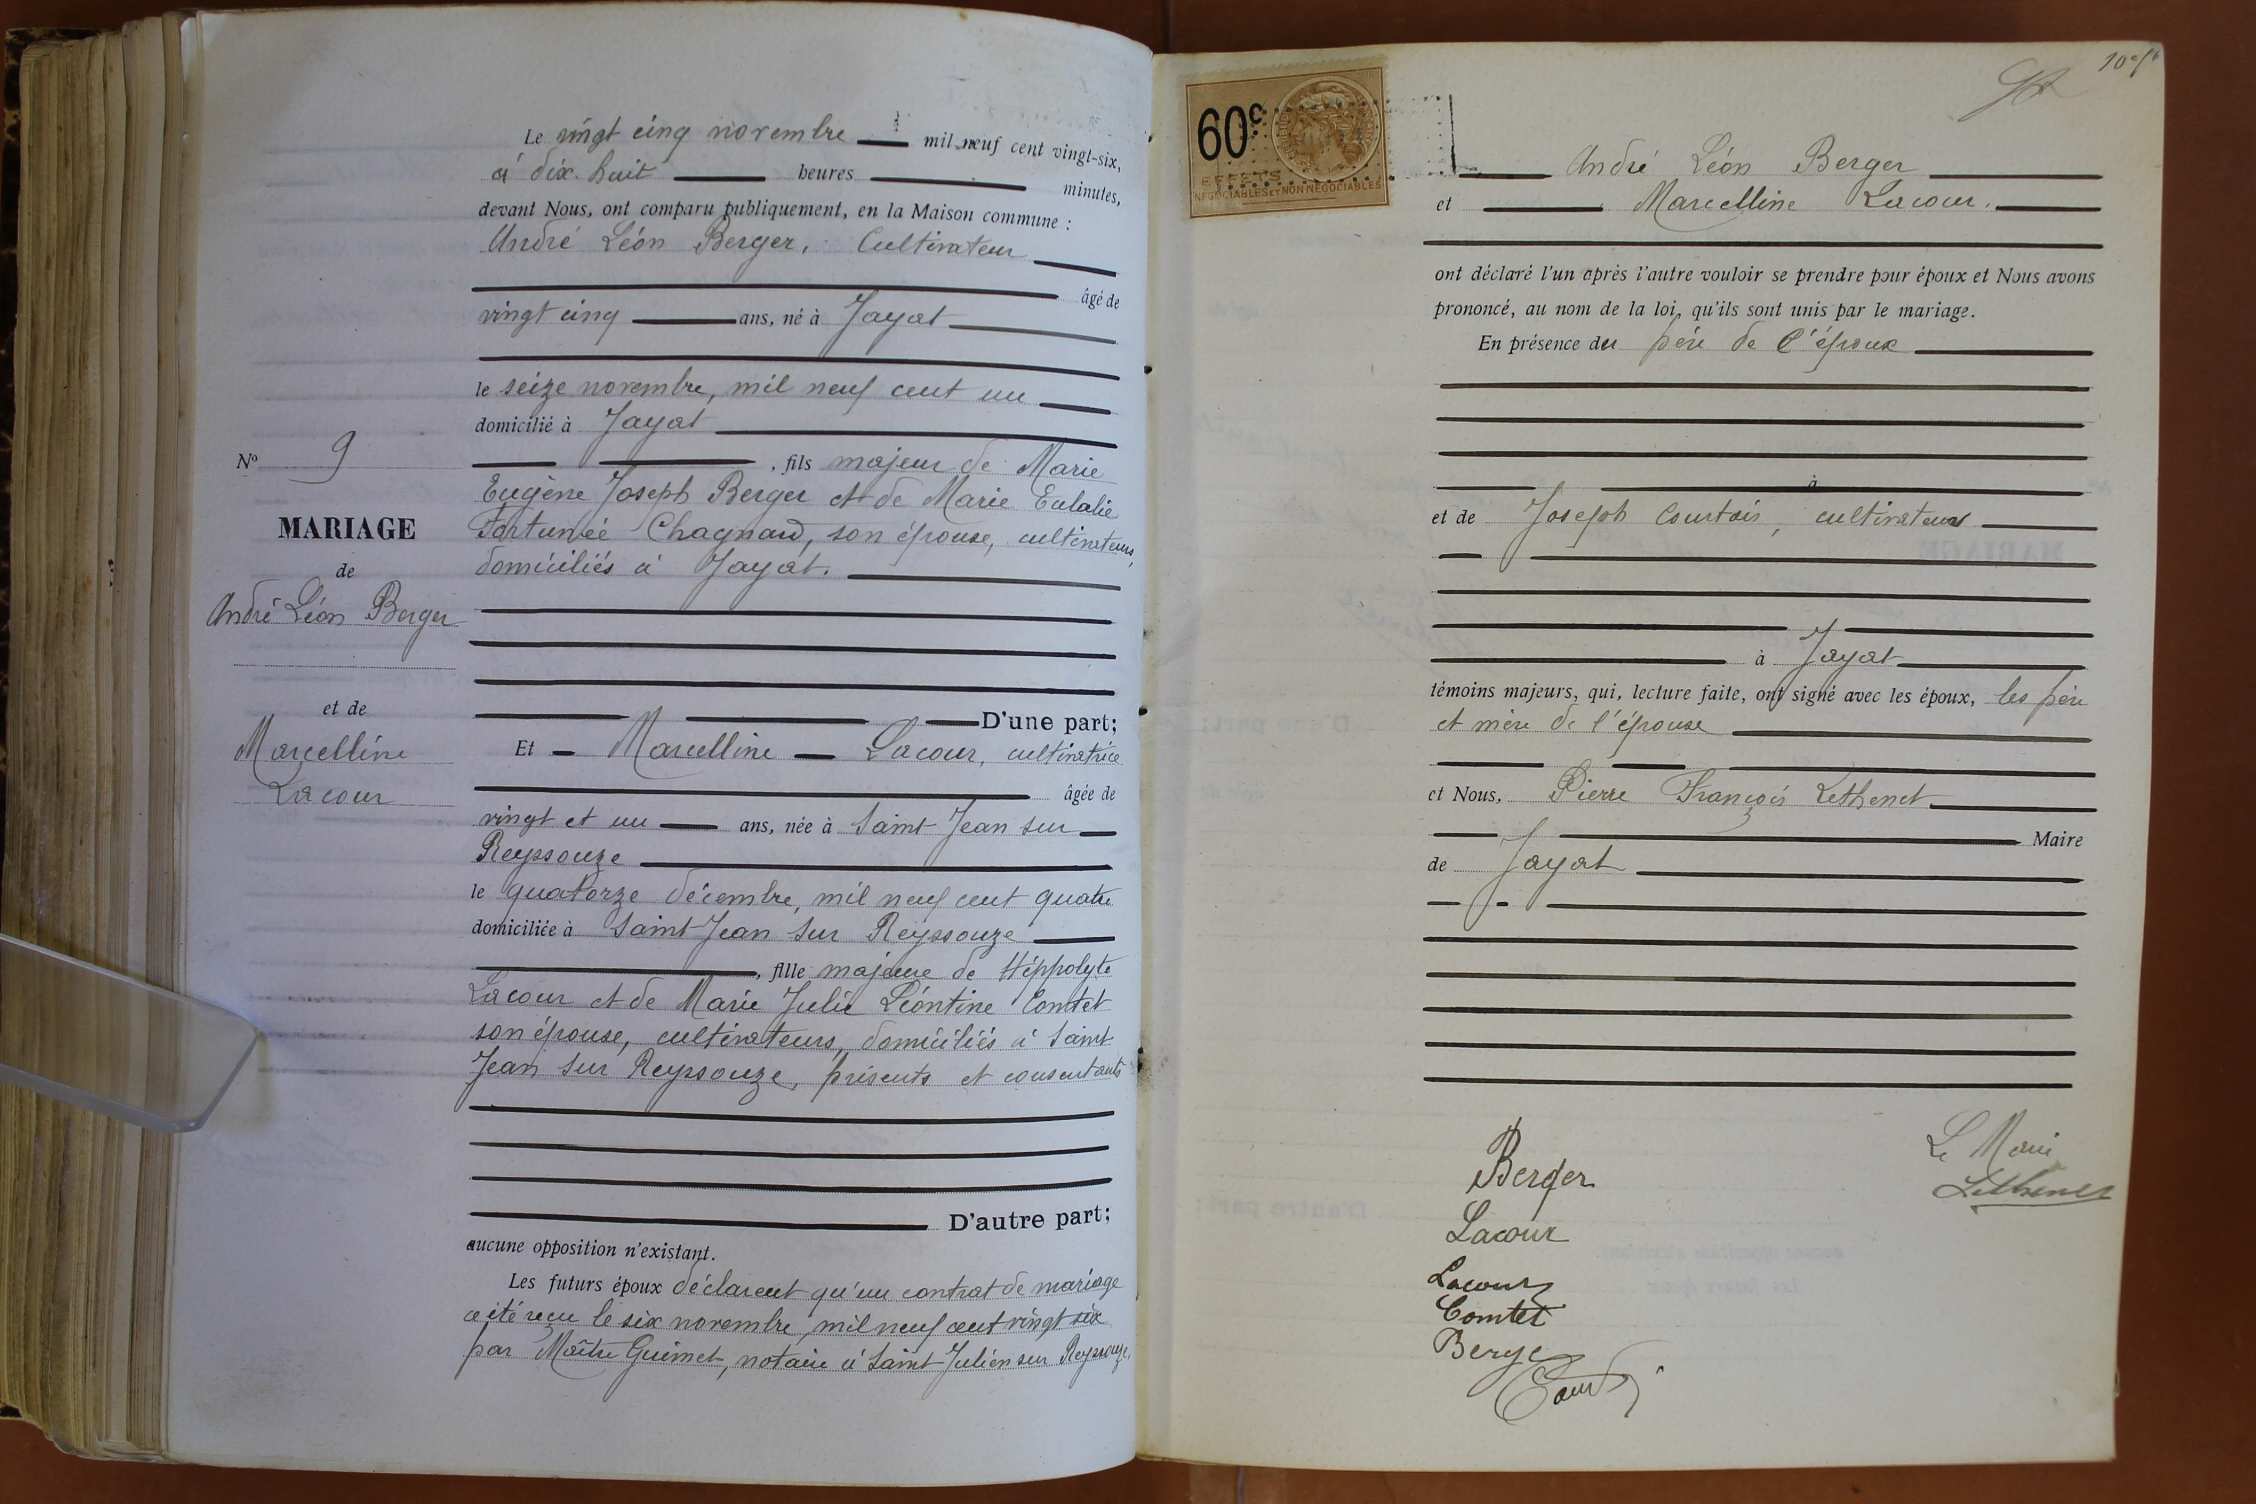 Le vingt cinq novembre mil neuf cent vingt-six,
à dix-huit heures minutes,
devant Nous, ont comparu publiquement, en la Maison commune :
André Léon Berger, Cultivateur
âgé de
vingt cinq ans, né à Jayat
le seize novembre, mil neuf cent un
domicilié à Jayat
, fils majeur de Marie
Eugène Joseph Berger et de Marie Eulalie
Fortunée Chagnard, son épouse, cultivateurs,
domiciliés à Jayat.
D'une part;
Et Marcelline Lacour, cultivatrice
âgée de
vingt et un ans, née à Saint Jean sur
Reyssouze
le quatorze décembre, mil neuf cent quatre
domiciliée à Saint Jean sur Reyssouze
, fille majeure de Héppolyte
Lacour et de Marie Julie Léontine Comtet
son épouse, cultivateurs, domiciliés à Saint
Jean sur Reyssouze, présents et consentants
D'autre part;
aucune opposition n'existant.
Les futurs époux déclarent qu'un contrat de mariage
a été reçu le six novembre mil neuf cent vingt six
par Maître Guimet, notaire à Saint Julien sur Reyssouze.
No 9
MARIAGE
de
André Léon Berger
et de
Marcelline
Lacour
60c
EFFETS
NÉGOCIABLES ET NON NÉGOCIABLES
André Léon Berger
et Marcelline Lacour.
ont déclaré l'un après l'autre vouloir se prendre pour époux et Nous avons
prononcé, au nom de la loi, qu'ils sont unis par le mariage.
En présence du père de l'époux
à
et de Joseph Courtois, cultivateur
à Jayat
témoins majeurs, qui, lecture faite, ont signé avec les époux, les père
et mère de l'épouse
et Nous, Pierre François Lethenet
Maire
de Jayat
Le Maire
Lethenet
Berger
Lacour
Lacour
Comtet
Berger